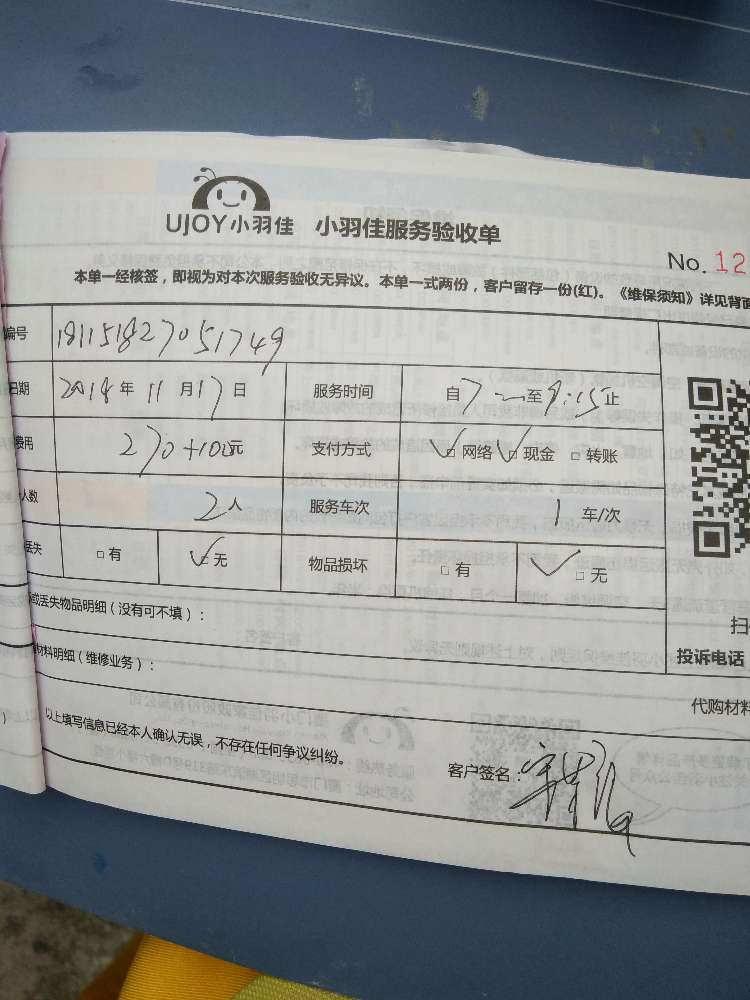 UJOY小羽佳 小羽佳服务验收单
No. 12
本单一经核签，即视为对本次服务验收无异议。本单一式两份，客户留存一份(红)。《维保须知》详见背面
编号 181151827051749
日期 2018 年 11 月 17 日 服务时间 自 7 至 9:15 止
费用 270+100元 支付方式 ☑ 网络 ☑ 现金 □ 转账
人数 2人 服务车次 1 车/次
丢失 □ 有 ☑ 无 物品损坏 □ 有 ☑ 无
或丢失物品明细（没有可不填）：
扫
材料明细（维修业务）：
投诉电话
代购材料
以上填写信息已经本人确认无误，不存在任何争议纠纷。
客户签名：